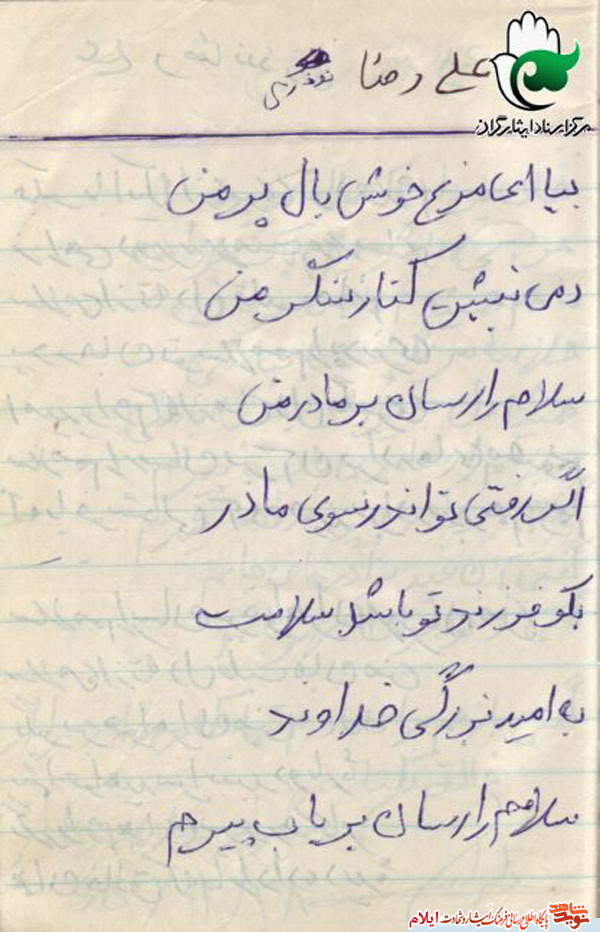 علی رضا نوذری
مرکز اسناد ایثارگران
بیا ای مرغ خوش بال پر من
دمی نبشین کنار سنگر من
سلام را رسان بر مادر من
اگر رفتی تو اندر سوی مادر
بگو فرزند تو باشد سلامت
به امید بزرگی خداوند
سلامم را رسان بر باب پیرم
نوید شاهد پایگاه اطلاع رسانی فرهنگ ایثار و شهادت ایلام